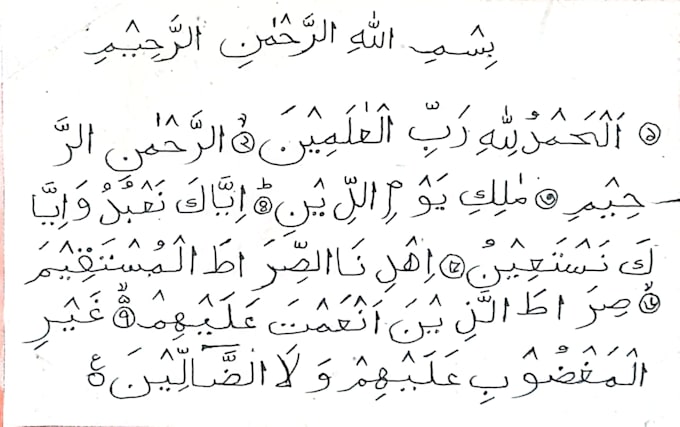 بِسْمِ اللهِ الرَّحْمٰنِ الرَّحِيْمِ
۝ اَلْحَمْدُ لِلّٰهِ رَبِّ الْعٰلَمِيْنَ ۝ الرَّحْمٰنِ الرَّ
حِيْمِ ۝ مٰلِكِ يَوْمِ الدِّيْنِ ۝ اِيَّاكَ نَعْبُدُ وَاِيَّا
كَ نَسْتَعِيْنُ ۝ اِهْدِ نَا الصِّرَاطَ الْمُسْتَقِيْمَ
۝ صِرَاطَ الَّذِيْنَ اَنْعَمْتَ عَلَيْهِمْ ۝ غَيْرِ
الْمَغْضُوْبِ عَلَيْهِمْ وَلَا الضَّالِّيْنَ ۝